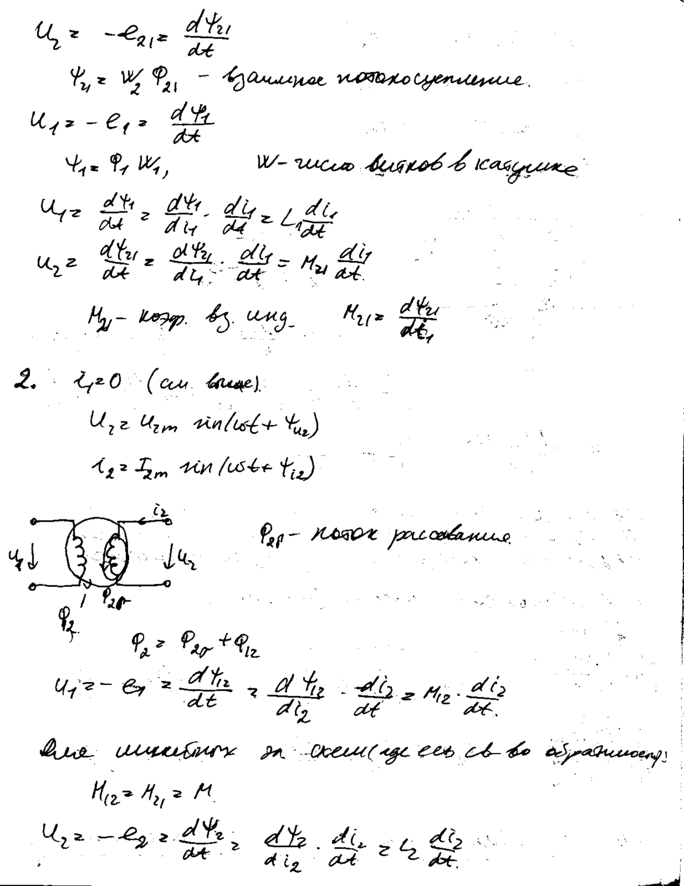 U₂ = -e₂₁ = dΨ₂₁/dt
Ψ₂₁ = W₂ Φ₂₁ – взаимное потокосцепление.
U₁ = -e₁ = dΨ₁/dt
Ψ₁ = Φ₁ W₁, W – число витков в катушке
U₁ = dΨ₁/dt = dΨ₁/di₁ · di₁/dt = L₁ di₁/dt
U₂ = dΨ₂₁/dt = dΨ₂₁/di₁ · di₁/dt = M₂₁ di₁/dt.
M₂₁ – коэф. вз. инд. M₂₁ = dΨ₂₁/di₁
2. i₁=0 (см. выше).
U₂ = U₂m sin(ωt + Ψu₂)
i₂ = I₂m sin(ωt + Ψi₂)
i₂
Φ₂σ – поток рассеивания.
U₁ U₂
Φ₂ Φ₂σ
Φ₂ = Φ₂σ + Φ₁₂
U₁ = -e₁ = dΨ₁₂/dt = dΨ₁₂/di₂ · di₂/dt = M₁₂ · di₂/dt.
Для линейных эл схем (где есь св-во обратимости):
M₁₂ = M₂₁ = M.
U₂ = -e₂ = dΨ₂/dt = dΨ₂/di₂ · di₂/dt = L₂ di₂/dt.